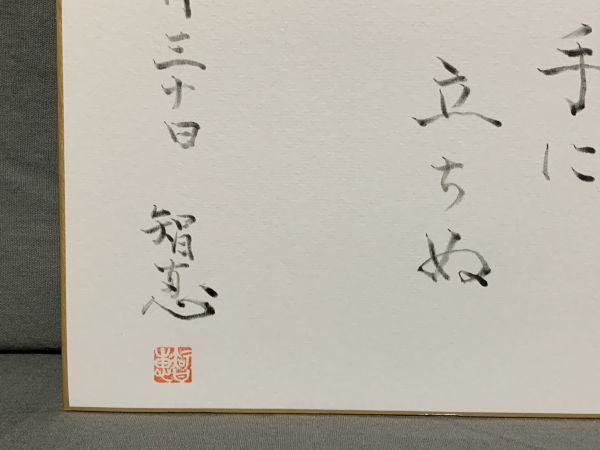 手に
立ちぬ
三十日 智恵